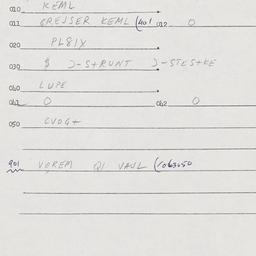 010 KEML
011 GREJSER KEML (401 012 0
020 PL81X
030 $ J-S+RUNT J-STES+KE
040 LUPE
041 0 042 0
050 CVDG+
901 VOREM QI VAUL (/063650